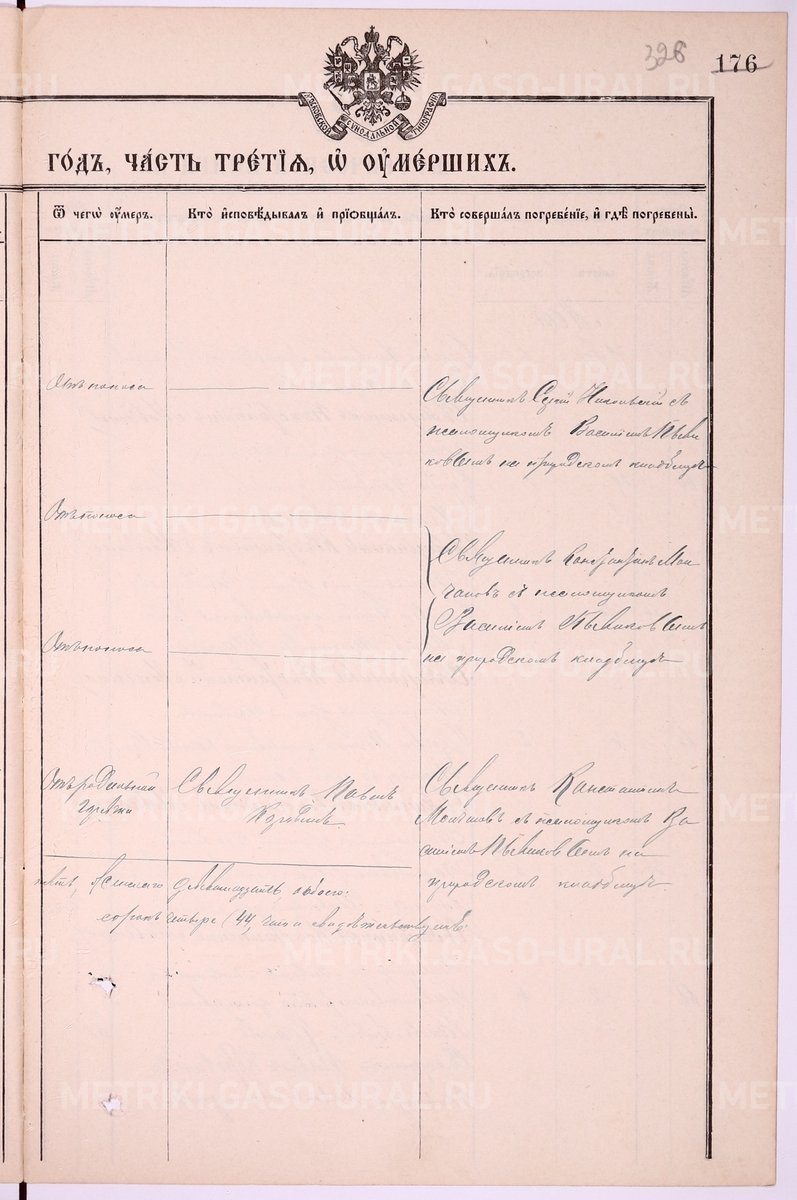 328 176
МОСКОВСКОЙ СѴНОДАЛЬНОЙ ТИПОГРАФІИ
ГО́ДЪ, ЧА́СТЬ ТРЕ́ТІѦ, Ѡ҆ ОУ҆МЕ́РШИХЪ.
Ѿ чегѡ̀ оу҆́меръ.
Кто̀ и҆сповѣ́дывалъ и҆ прїѡбща́лъ.
Кто̀ соверша́лъ погребе́нїе, и҆ гдѣ̀ погребены̀.
Отъ поноса
Священникъ Сергій Никольскій съ
псаломщикомъ Василіемъ
на приходскомъ кладбищѣ
Отъ поноса
Священникъ Константинъ Мол
чановъ съ псаломщикомъ
Василіемъ
Отъ поноса
на приходскомъ кладбищѣ
Отъ родильной
горячки
Священникъ Павелъ
Священникъ Константинъ
Молчановъ съ псаломщикомъ Ва
силіемъ на
приходскомъ кладбищѣ
женскаго двѣнадцать обоего
сорокъ четыре (44, что и свидѣтельствуемъ.
METRIKI.GASO-URAL.RU